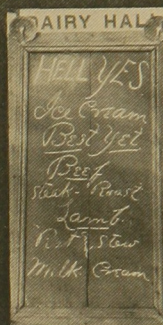 DAIRY HALL
HELL YES
Ice Cream
Best Yet
Beef
Steak - Roast
Lamb
Rst & Stew
Milk Cream